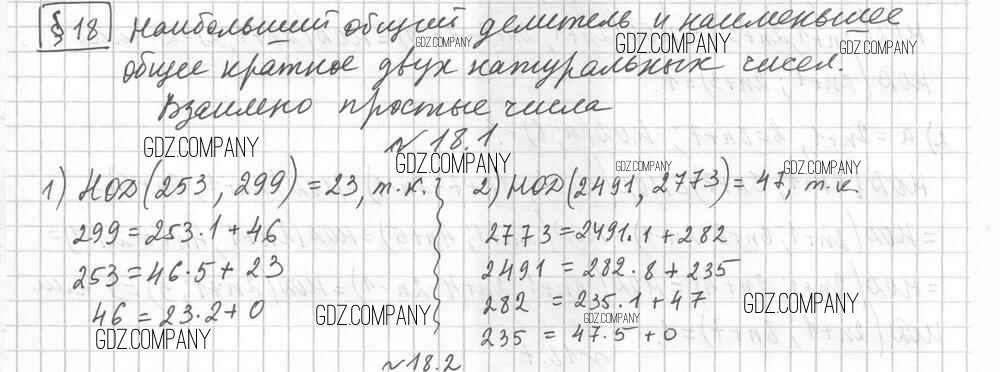 § 18 Наибольший общий делитель и наименьшее
общее кратное двух натуральных чисел.
Взаимно простые числа
№ 18.1
1) НОД(253, 299) = 23, т.к.
299 = 253·1 + 46
253 = 46·5 + 23
46 = 23·2 + 0
2) НОД(2491, 2773) = 47, т.к.
2773 = 2491·1 + 282
2491 = 282·8 + 235
282 = 235·1 + 47
235 = 47·5 + 0
№ 18.2
GDZ.COMPANY
GDZ.COMPANY
GDZ.COMPANY
GDZ.COMPANY
GDZ.COMPANY
GDZ.COMPANY
GDZ.COMPANY
GDZ.COMPANY
GDZ.COMPANY
GDZ.COMPANY
GDZ.COMPANY